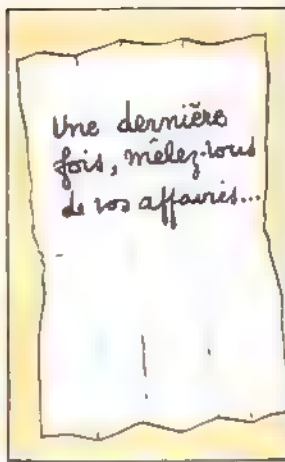 Une dernière
fois, mêlez-vous
de vos affaires...